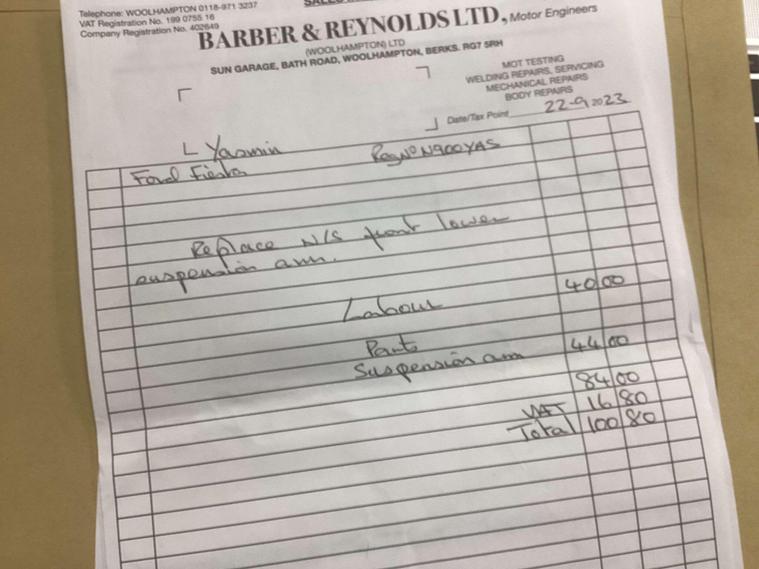 Telephone: WOOLHAMPTON 0118-971 3237
VAT Registration No. 199 0755 16
Company Registration No. 402649
BARBER & REYNOLDS LTD, Motor Engineers
(WOOLHAMPTON) LTD
SUN GARAGE, BATH ROAD, WOOLHAMPTON, BERKS. RG7 5RH
MOT TESTING
WELDING REPAIRS, SERVICING
MECHANICAL REPAIRS
BODY REPAIRS
Date/Tax Point 22-9 2023
Yasmin
Ford Fiesta Reg No N900YAS
Replace N/S front lower
suspension arm.
Labour 40 00
Parts
Suspension arm 44 00
84 00
VAT 16 80
Total 100 80